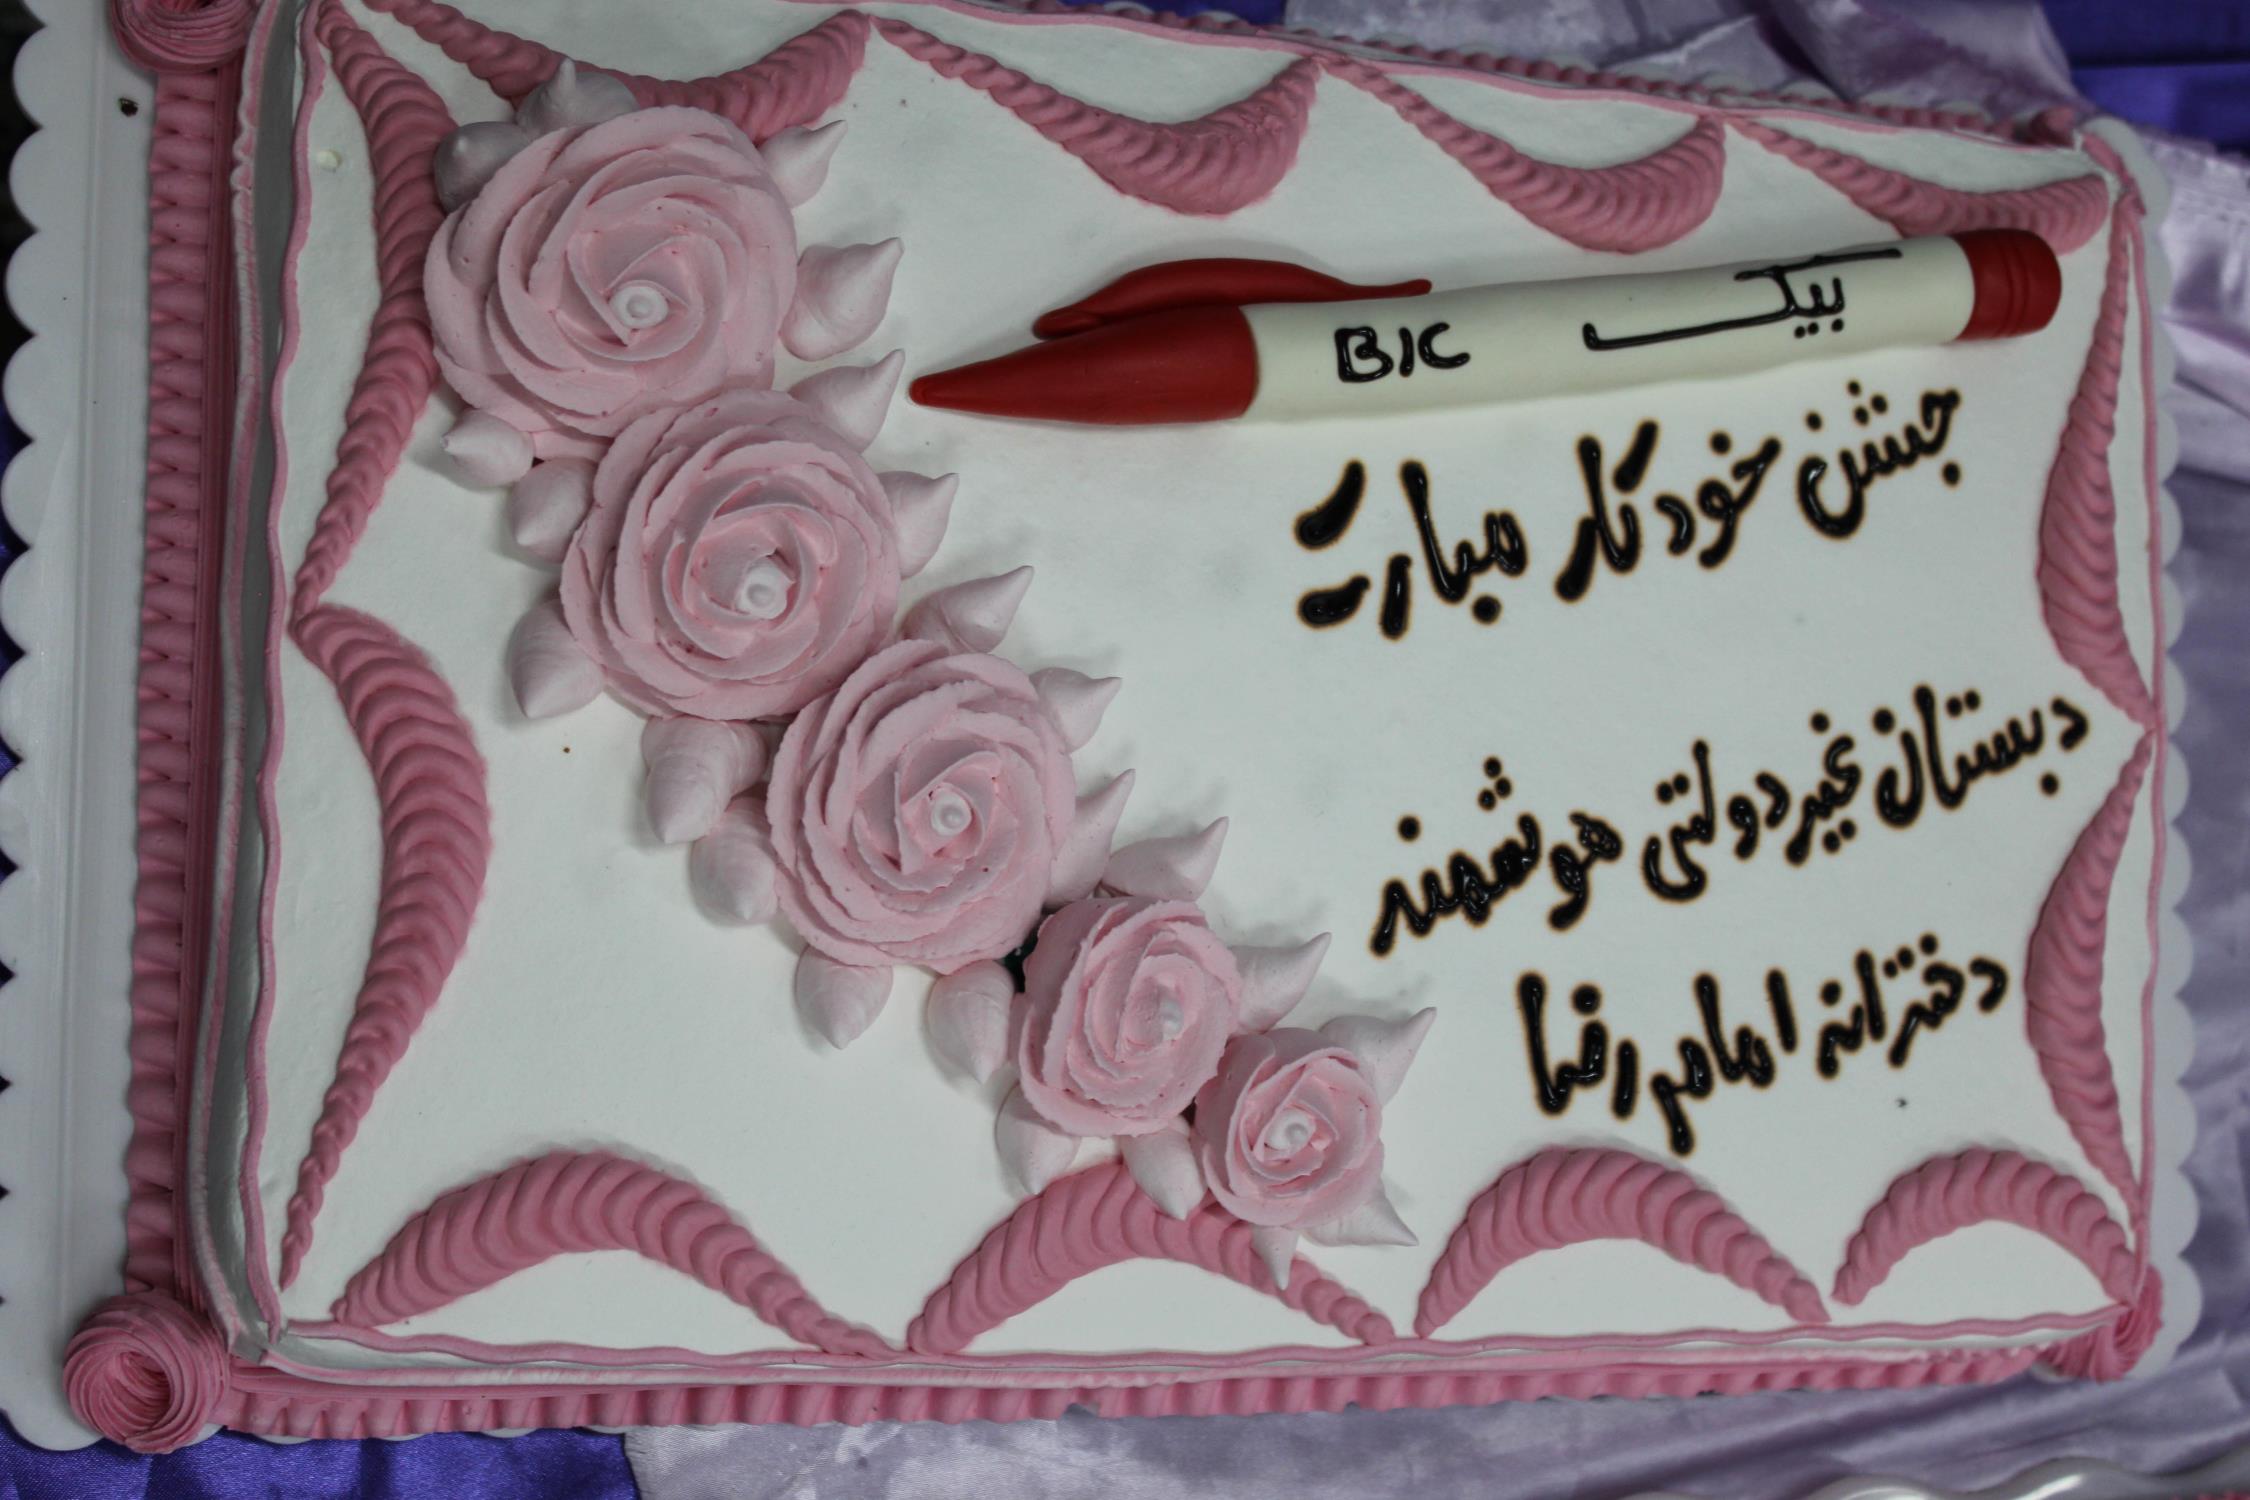 BIC بیک
جشن خودکار مبارک
دبستان غیردولتی هوشمند
دخترانه امام رضا